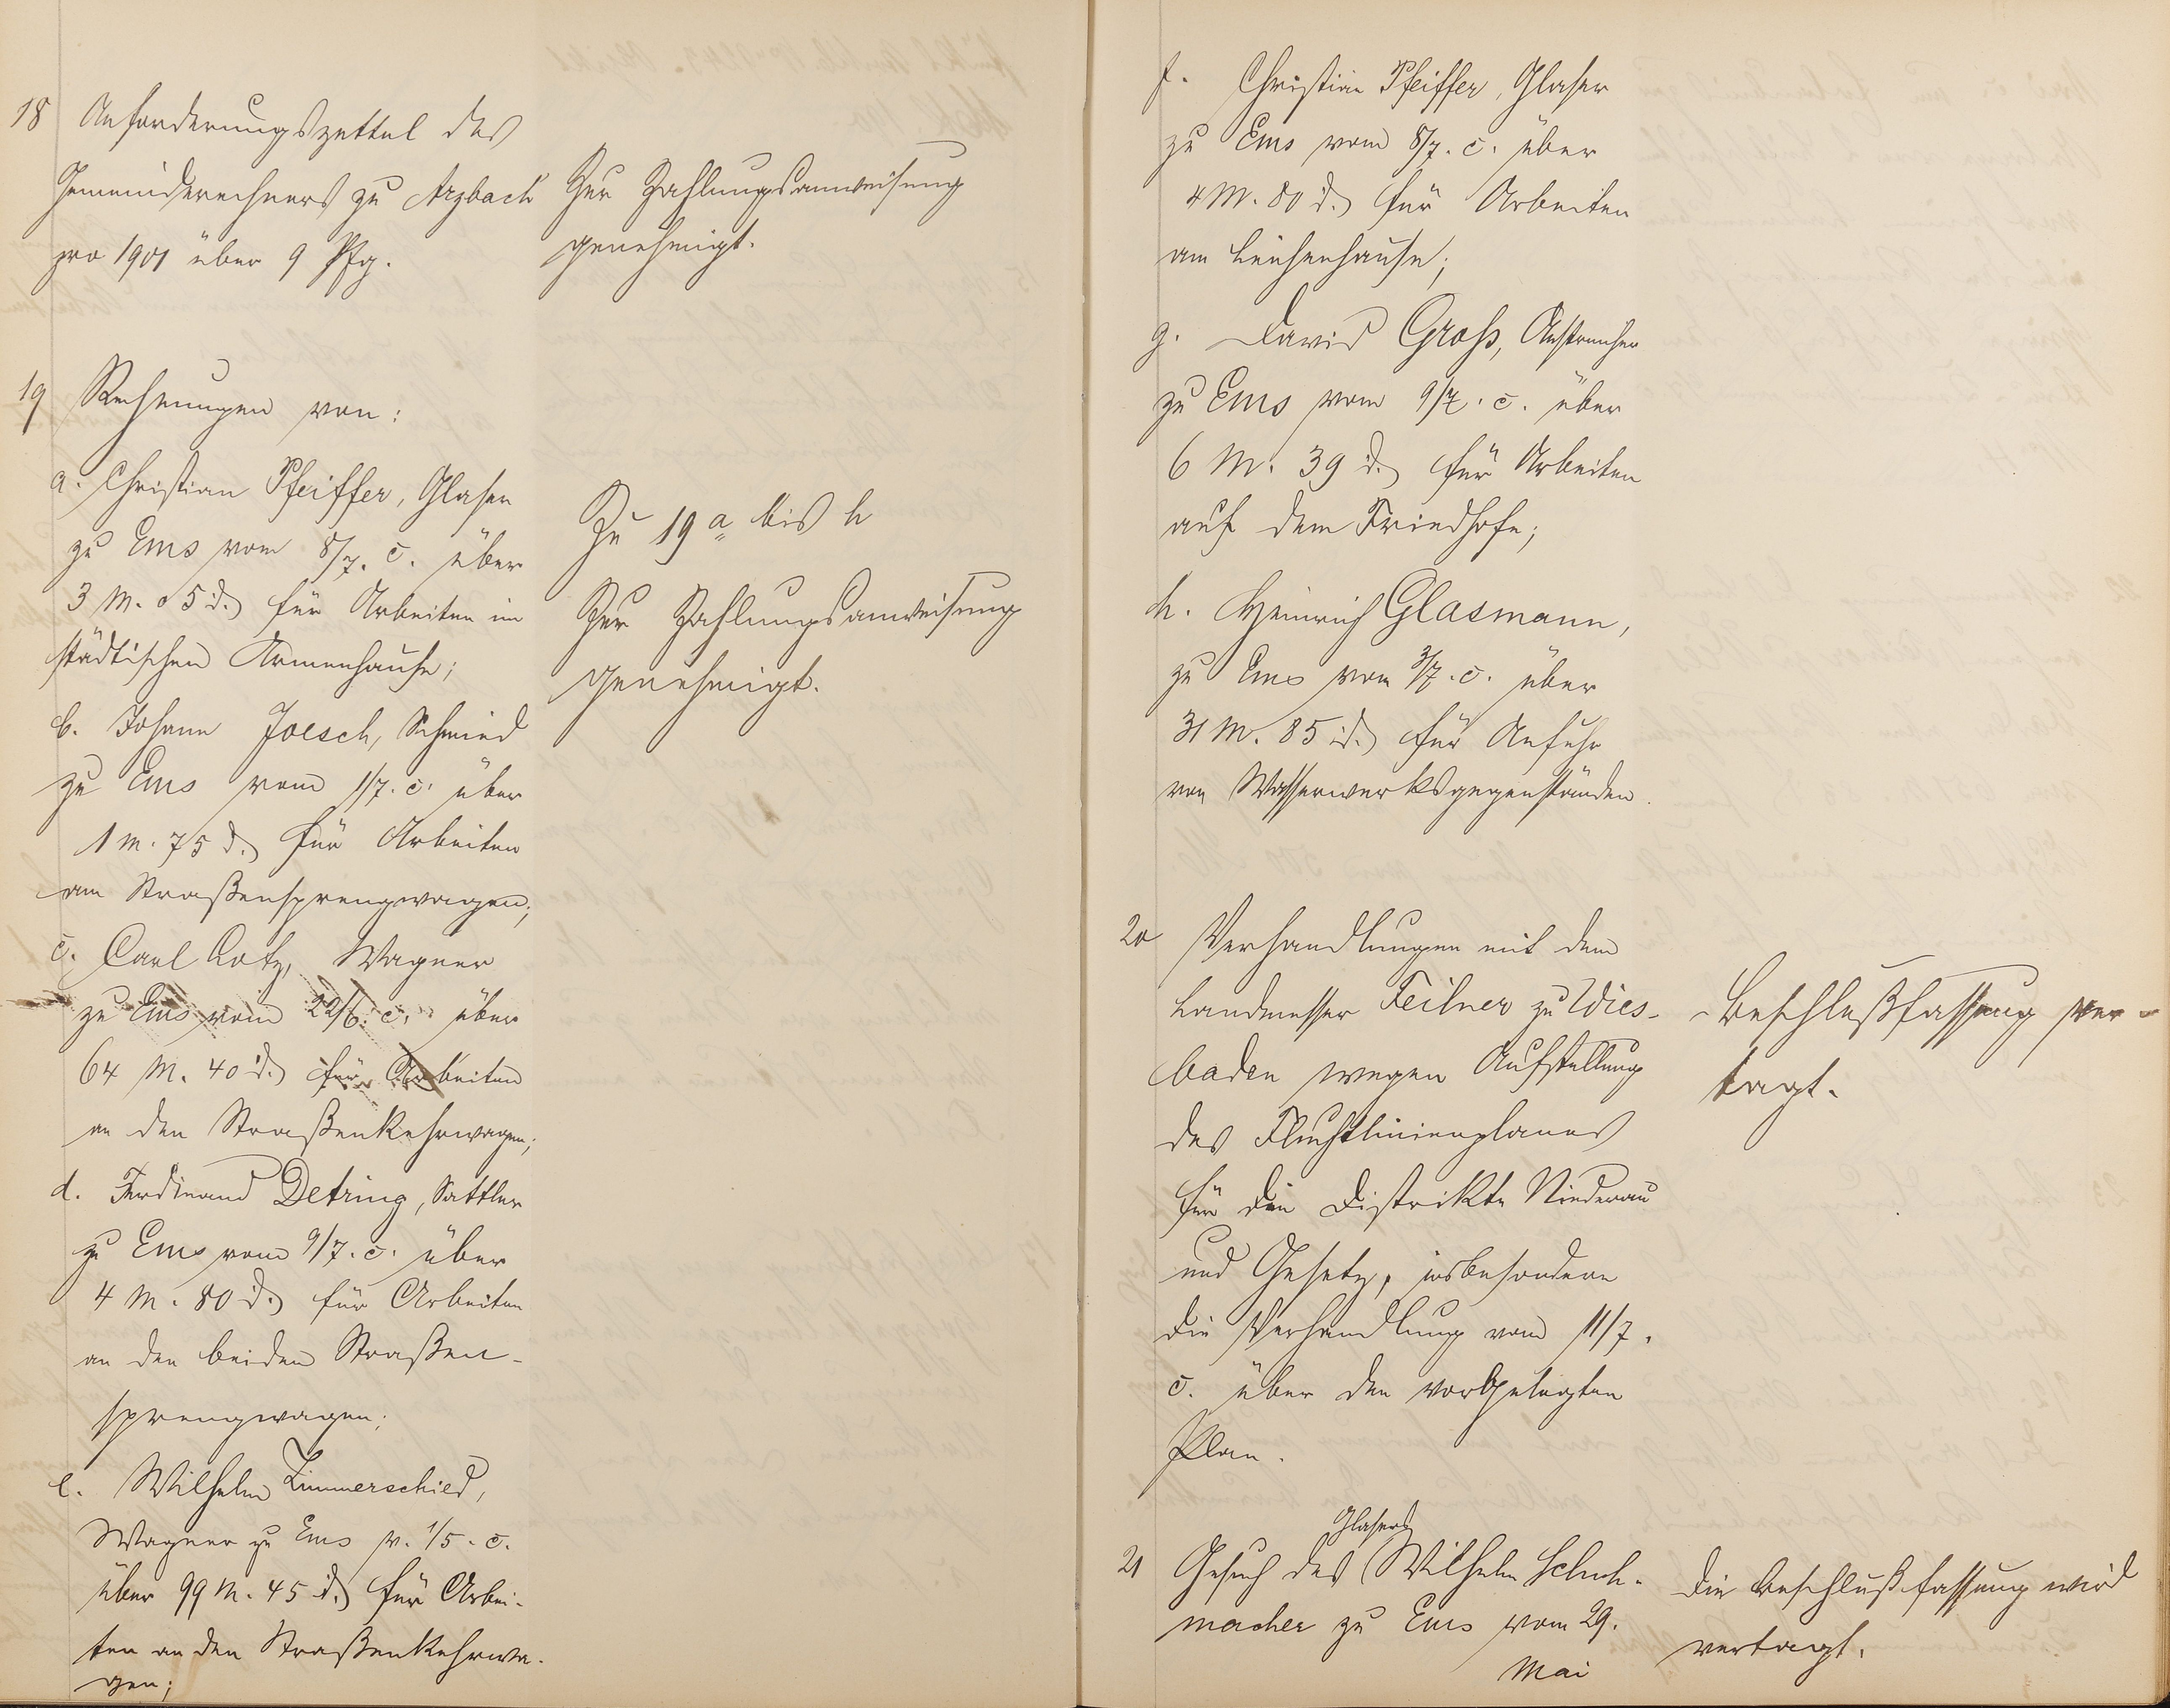 18 Anforderungszettel des
Gemeinderechners zu Arzbach
pro 1901 über 9 Pfg.
Zur Zahlungsanweisung
genehmigt.
19 Rechnungen von:
a. Christian Pfeiffer, Glaser
zu Ems vom 8/7. c. über
3 M. 05 d. für Arbeiten im
städtischen Armenhause;
b. Johann Joesch, Schmied
zu Ems vom 1/7. c. über
1 M. 75 d. für Arbeiten
am Straßensprengwagen;
c. Carl Lotz, Wagner
zu Ems vom 22/6. c. über
64 M. 40 d. für Arbeiten
an den Straßenkehrwagen;
d. Ferdinand Detring, Sattler
zu Ems vom 9/7. c. über
4 M. 80 d. für Arbeiten
an den beiden Straßen-
sprengwagen;
e. Wilhelm Zimmerschied,
Wagner zu Ems v. 1/5. c.
über 99 M. 45 d. für Arbei-
ten an den Straßenkehrwa-
gen;
Zu 19 a bis h
Zur Zahlungsanweisung
genehmigt.
f. Christian Pfeiffer, Glaser
zu Ems vom 8/7. c. über
4 M. 80 d. für Arbeiten
am Leichenhause;
g. David Groß, Anstreicher
zu Ems vom 9/7. c. über
6 M. 39 d. für Arbeiten
auf dem Friedhofe;
h. Heinrich Glasmann,
zu Ems vom 3/7. c. über
31 M. 85 d. für Anfuhr
von Wasserwerksgegenständen.
20 Verhandlungen mit dem
Landmesser Feilner zu Wies-
baden wegen Aufstellung
des Fluchtlinienplanes
für die Distrikte Niederau
und Gesetz, insbesondere
die Verhandlung vom 11/7.
c. über den vorgelegten
Plan.
Beschlußfassung ver-
tagt.
21 Gesuch des Glasers Wilhelm Schuh-
macher zu Ems vom 29.
Mai
Die Beschlußfassung wird
vertagt.